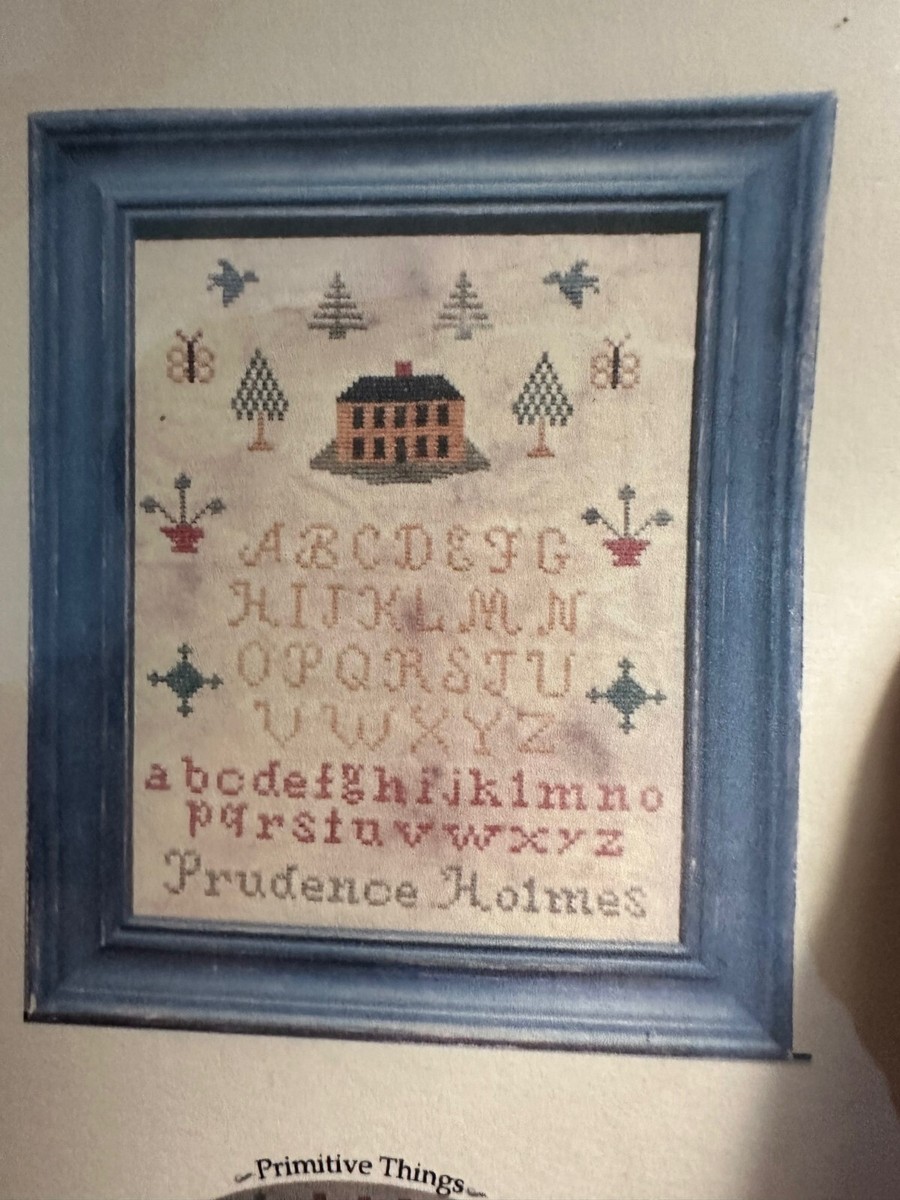 A B C D E F G
H I J K L M N
O P Q R S T U
V W X Y Z
a b c d e f g h i j k l m n o
p q r s t u v w x y z
Prudence Holmes
Primitive Things